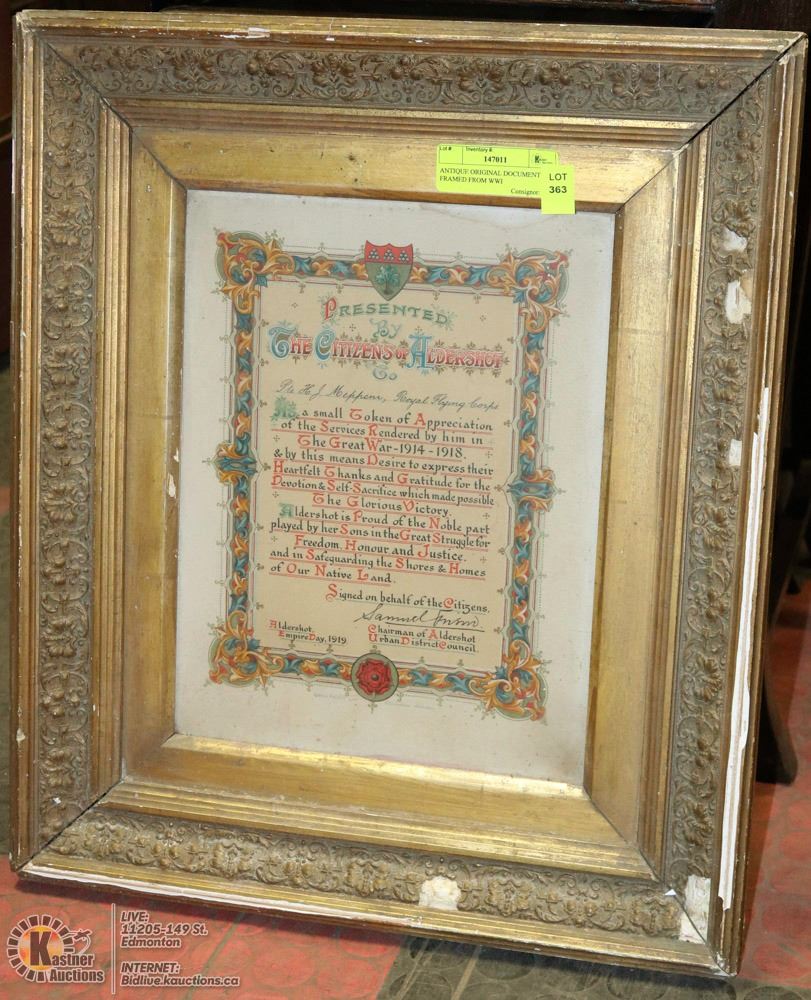 Lot #
Inventory #:
147011
ANTIQUE ORIGINAL DOCUMENT
FRAMED FROM WWI
Consignor:
LOT
363
PRESENTED
By
THE CITIZENS OF ALDERSHOT
To
Pte H. J. Meppem, Royal Flying Corps
As a small Token of Appreciation
of the Services Rendered by him in
The Great War-1914-1918.
& by this means Desire to express their
Heartfelt Thanks and Gratitude for the
Devotion & Self-Sacrifice which made possible
The Glorious Victory.
Aldershot is Proud of the Noble part
played by her Sons in the Great Struggle for
Freedom, Honour and Justice.
and in Safeguarding the Shores & Homes
of Our Native Land.
Signed on behalf of the Citizens.
Samuel
Aldershot,
Empire Day, 1919
Chairman of Aldershot
Urban District Council.
Kastner
Auctions
LIVE:
11205-149 St.
Edmonton
INTERNET:
Bidlive.kauctions.ca